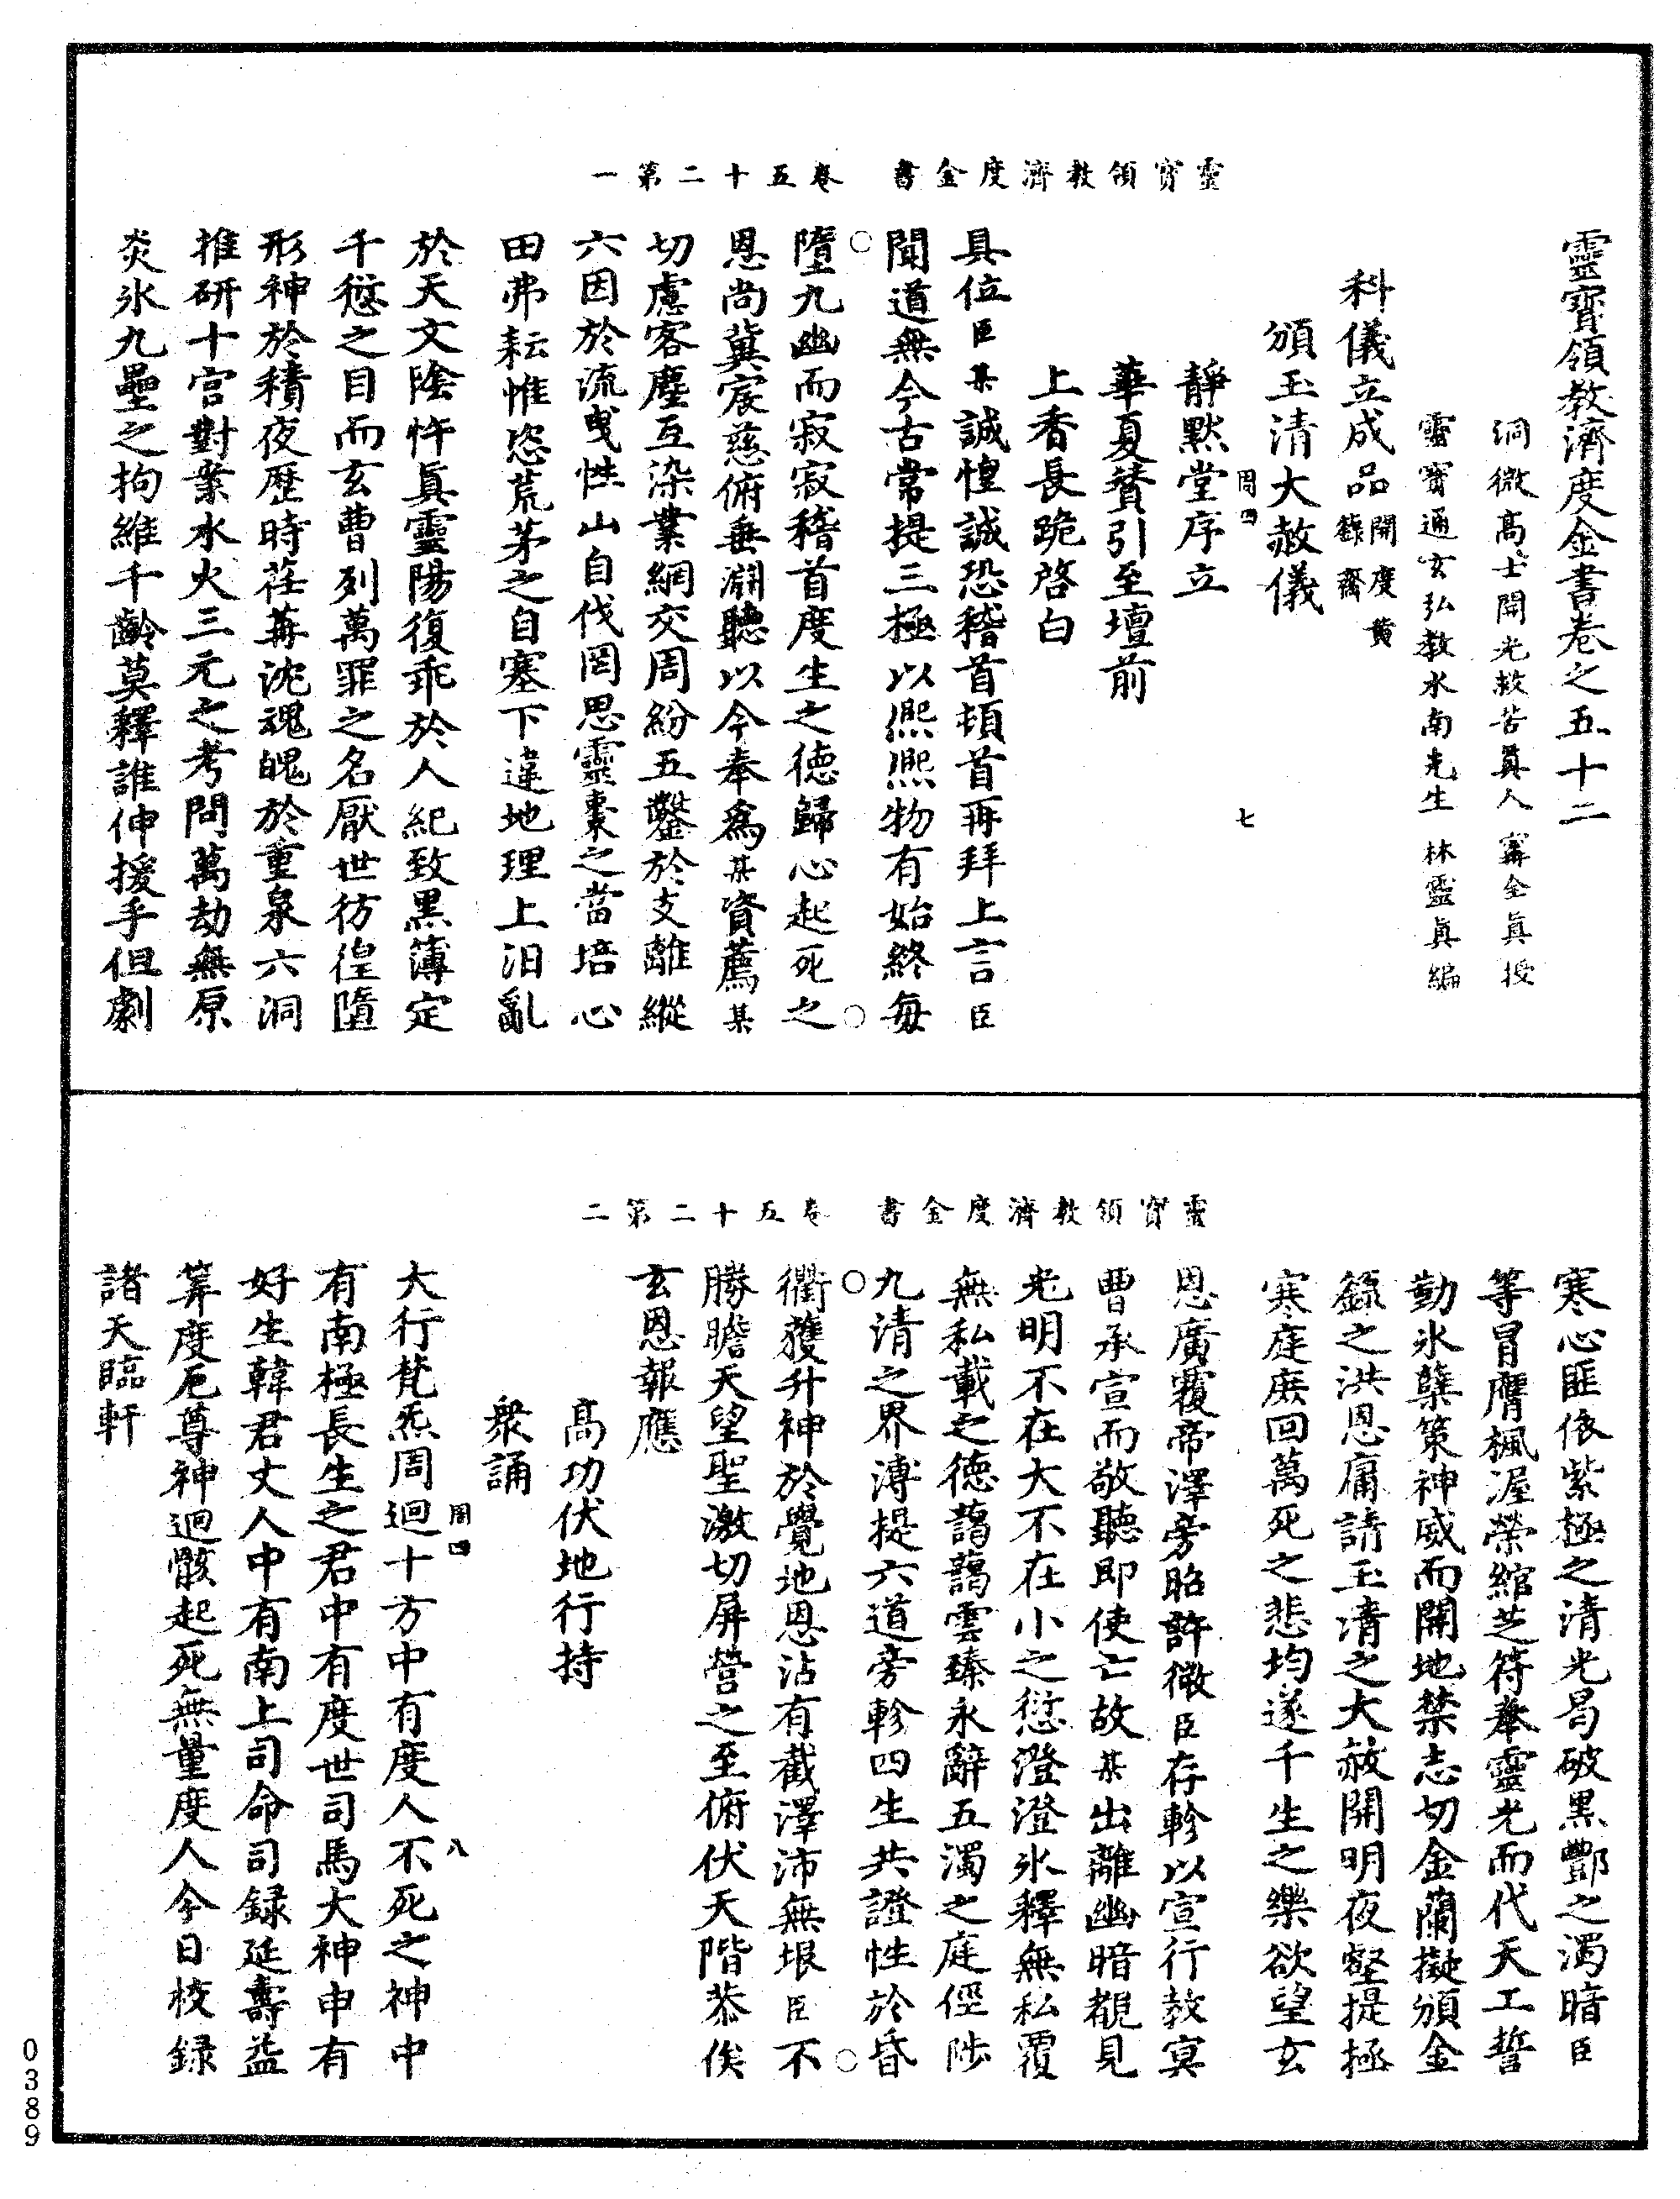 靈寶領教濟度金書　卷五十二第一
靈寶領教濟度金書卷之五十二
洞微高士開光救苦眞人甯全眞授
靈寶通玄弘教水南先生林靈眞編
科儀立成品開度黃籙齋
頒玉清大赦儀
周四　七
靜默堂序立
華夏贊引至壇前
上香長跪啓白
具位臣某誠惶誠恐稽首頓首再拜上言臣
聞道無今古常提三極以熙熙物有始終每
墮九幽而寂寂稽首度生之德歸心起死之
恩尚冀宸慈俯垂淵聽以今奉爲某資薦某
切慮客塵互染業網交周紛五鑿於支離縱
六因於流曳性山自伐罔思靈橐之當培心
田弗耘惟恣荒茅之自塞下違地理上汨亂
於天文陰忤眞靈陽復乖於人紀致黑簿定
千愆之目而玄曹列萬罪之名厭世彷徨墮
形神於積夜歷時荏苒沈魂魄於重泉六洞
推研十宫對業水火三元之考問萬劫無原
炎氷九壘之拘維千齡莫釋誰伸援手但劇
靈寶領教濟度金書　卷五十二第二
寒心匪依紫極之清光曷破黑酆之濁暗臣
等冒膺楓渥榮綰芝符奉靈光而代天工誓
勤氷蘗策神威而開地禁志切金蘭擬頒金
籙之洪恩庸請玉清之大赦開明夜壑提拯
寒庭庶回萬死之悲均遂千生之樂欲望玄
恩廣覆帝澤旁昭許微臣存軫以宣行教冥
曹承宣而敬聽即使亡故某出離幽暗覩見
光明不在大不在小之愆澄澄氷釋無私覆
無私載之德藹藹雲臻永辭五濁之庭徑陟
九清之界溥提六道旁軫四生共證性於昏
衢獲升神於覺地恩沾有截澤沛無垠臣不
勝瞻天望聖激切屏營之至俯伏天階恭俟
玄恩報應
高功伏地行持
衆誦
周四　八
大行梵炁周迴十方中有度人不死之神中
有南極長生之君中有度世司馬大神中有
好生韓君丈人中有南上司命司録延壽益
筭度厄尊神迴骸起死無量度人今日校録
諸天臨軒
0389